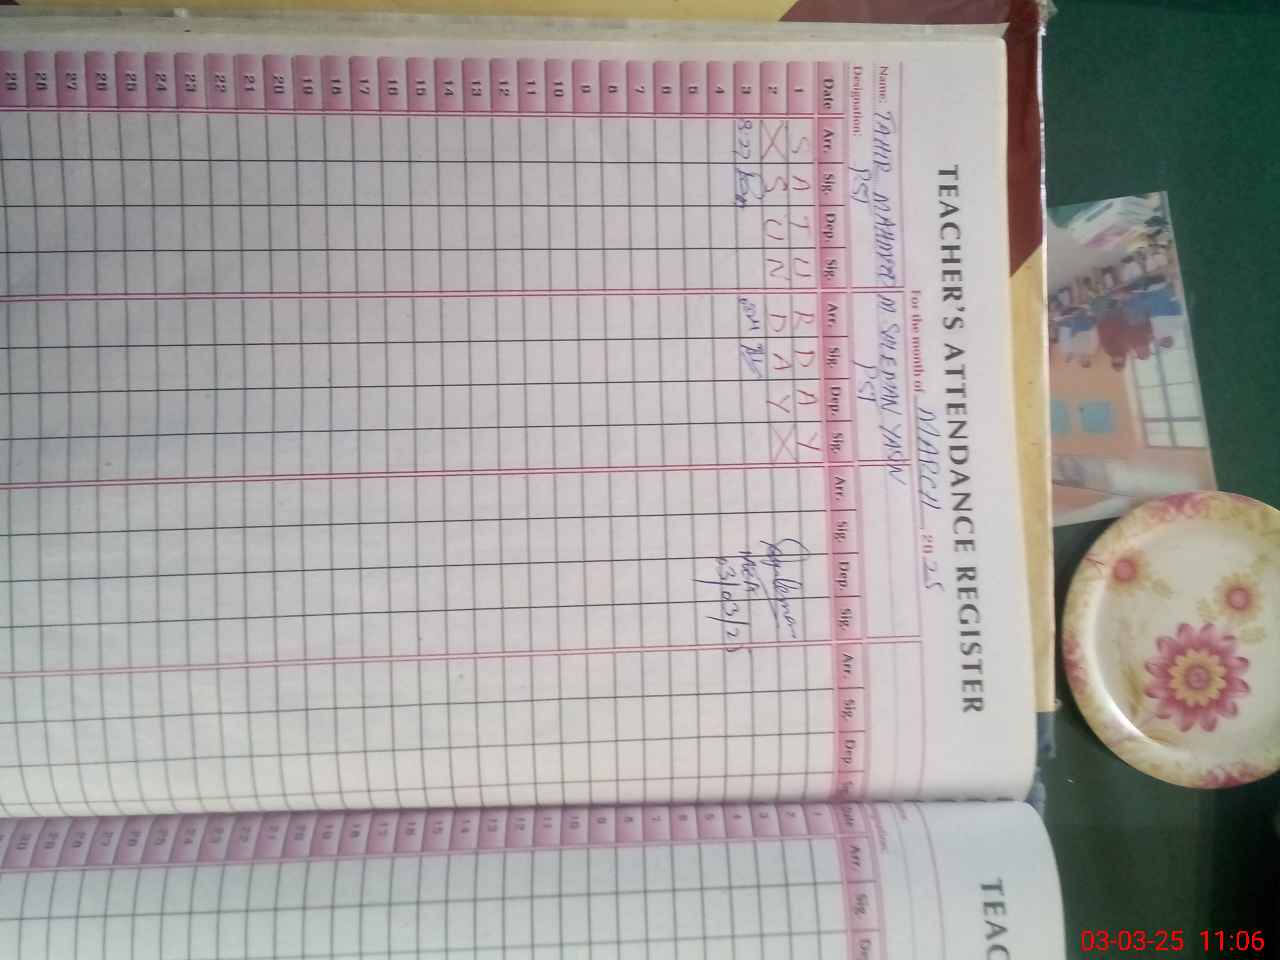 TEACHER'S ATTENDANCE REGISTER
For the month of MARCH 2025
Name: TAHIR MAHMOOD M SULEMAN YASIN
Designation: PST PST
Date Arr. Sig. Dep. Sig. Arr. Sig. Dep. Sig. Arr. Sig. Dep. Sig. Arr. Sig. Dep.
1 S A T U R D A Y
2 X S U N D A Y X
3 8:27
MEA
4 03/03/25
5
6
7
8
9
10
11
12
13
14
15
16
17
18
19
20
21
22
23
24
25
26
27
28
29
TEAC
Arr. Sig.
1
2
3
4
5
6
7
8
9
10
11
12
13
14
15
16
17
18
19
20
21
22
23
24
25
26
27
28
29
30
03-03-25 11:06